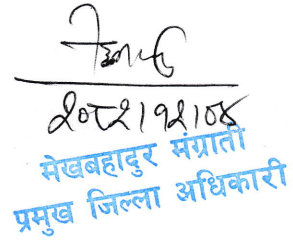 २०८२।१२।०४
मेखबहादुर मंग्राती
प्रमुख जिल्ला अधिकारी